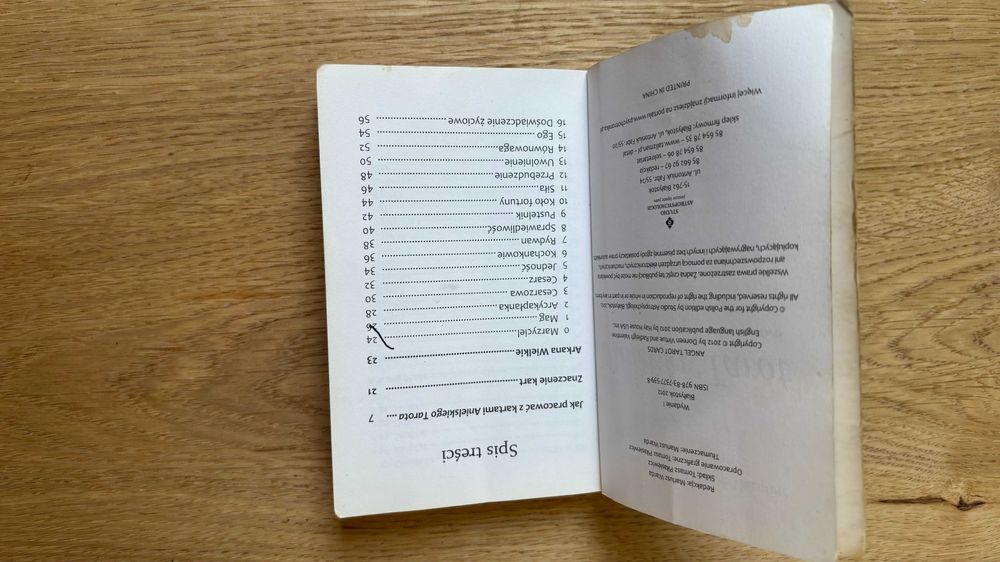 Redakcja: Mariusz Warda
Skład: Tomasz Piłasiewicz
Opracowanie graficzne: Tomasz Piłasiewicz
Tłumaczenie: Mariusz Warda
Wydanie I
Białystok 2012
ISBN 978-83-7377-539-8
ANGEL TAROT CARDS
Copyright © 2012 by Doreen Virtue and Radleigh Valentine
English language publication 2012 by Hay House USA Inc.
© Copyright for the Polish edition by Studio Astropsychologii, Białystok, 2012.
All rights reserved, including the right of reproduction in whole or in part in any form.
Wszelkie prawa zastrzeżone. Żadna część tej publikacji nie może być powielana
ani rozpowszechniana za pomocą urządzeń elektronicznych, mechanicznych,
kopiujących, nagrywających i innych bez pisemnej zgody posiadaczy praw autorskich.
STUDIO
ASTROPSYCHOLOGII
15-762 Białystok
ul. Antoniuk Fabr. 55/24
85 662 92 67 – redakcja
85 654 78 06 – sekretariat
85 654 78 35 – www.talizman.pl – detal
sklep firmowy: Białystok, ul. Antoniuk Fabr. 55/20
Więcej informacji znajdziesz na portalu www.psychotronika.pl
PRINTED IN CHINA
Spis treści
Jak pracować z kartami Anielskiego Tarota .... 7
Znaczenie kart .... 21
Arkana Wielkie .... 23
0 Marzyciel .... 24
1 Mag .... 26
2 Arcykapłanka .... 28
3 Cesarzowa .... 30
4 Cesarz .... 32
5 Jedność .... 34
6 Kochankowie .... 36
7 Rydwan .... 38
8 Sprawiedliwość .... 40
9 Pustelnik .... 42
10 Koło fortuny .... 44
11 Siła .... 46
12 Przebudzenie .... 48
13 Uwolnienie .... 50
14 Równowaga .... 52
15 Ego .... 54
16 Doświadczenie życiowe .... 56